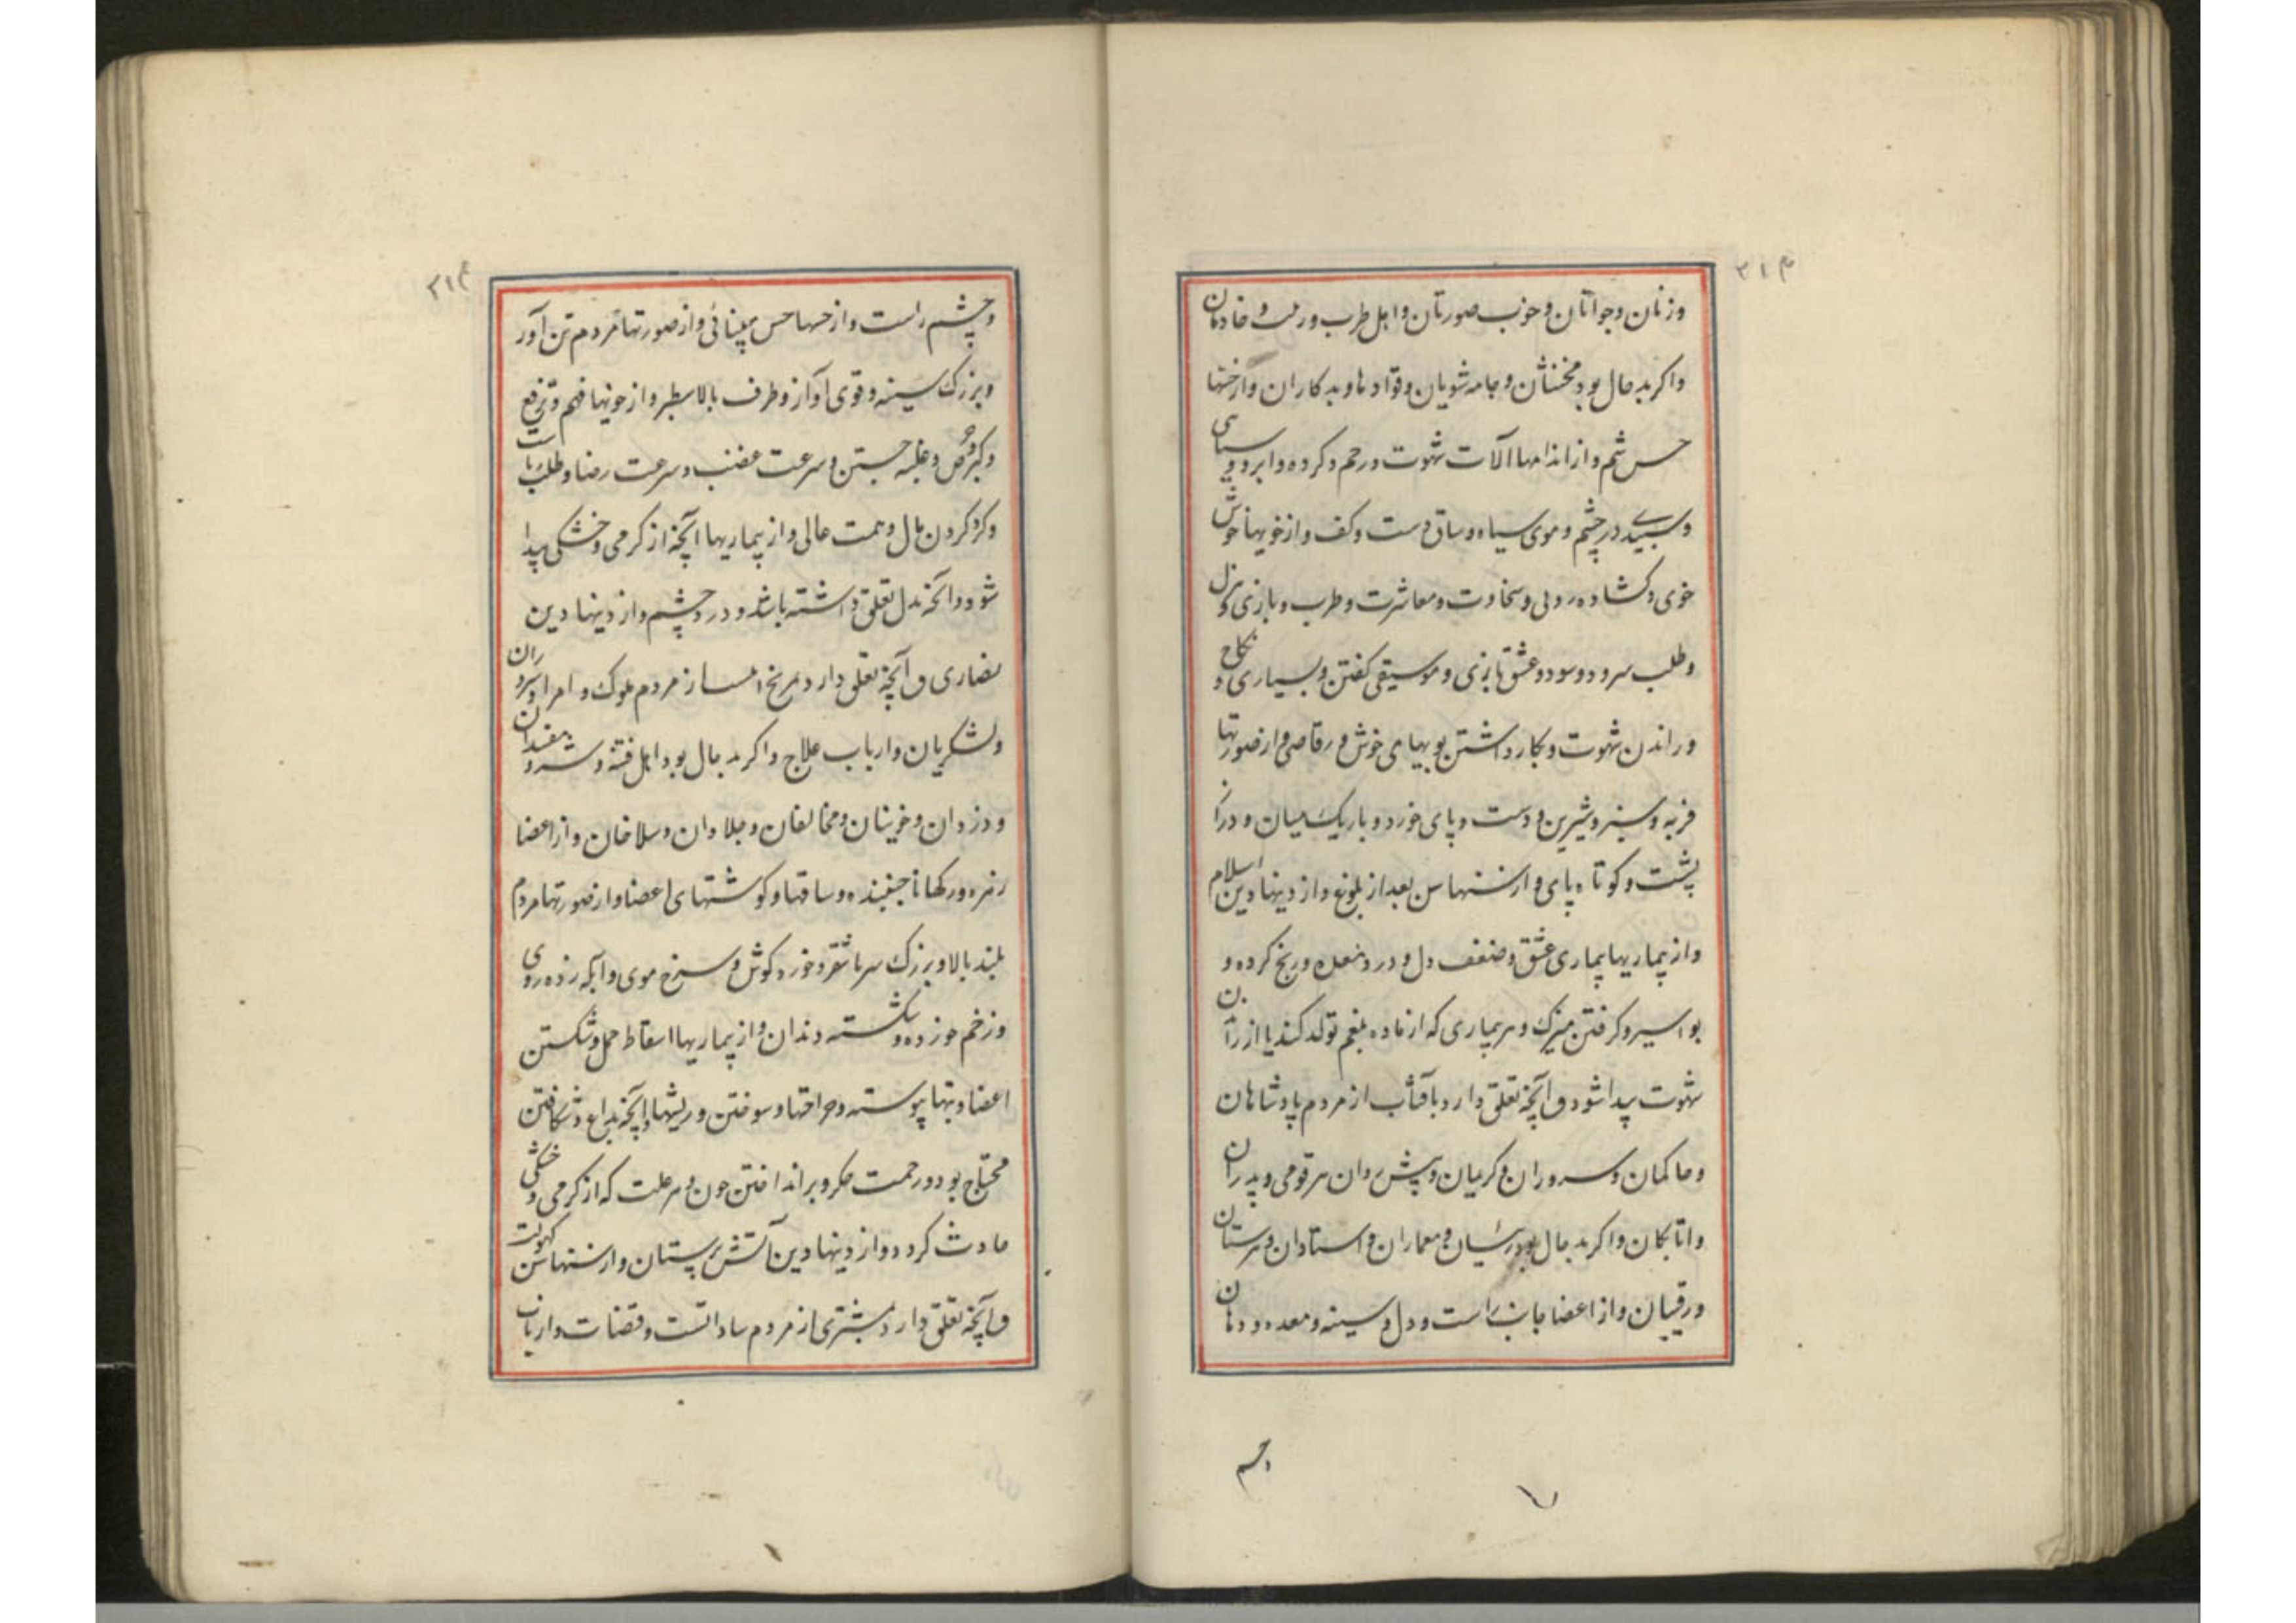 ۳۱۴
وزنان وجوانان وخوب صورتان واهل طرب وزینت وخادمان
واکر بدحال بود مخنثان وجامه شویان وقوادها وبدکاران وازحسها
حس شم وازاندامها آلات شهوت ورحم وکرده وابرو وسیاهی
وسپیدی درچشم وموی سیاه وساق دست وکف وازخویها خوش
خوی وکشاده رویی وسخاوت ومعاشرت وطرب وبازی وهزل
وطلب سرود وسود وعشق بازی وموسیقی کفتن وبسیاری نکاح و
وراندن شهوت وبکار داشتن بویهای خوش ورقاصی وازصورتها
فربه وسبز وشیرین ودست وپای خورد وباریک میان ودراز
پشت وکوتاه پای وازسنها سن بعد از بلوغ وازدینها دین اسلام
وازبیماریها بیماری عشق وضعف دل ودرد معده ورنج کرده و
بواسیر وکرفتن میزک وهر بیماری که ازماده بلغم تولد کند یا ازراندن
شهوت پیدا شود و آنچه تعلق دارد بآفتاب ازمردم پادشاهان
وحاکمان وسروران وکریمان وپیش روان هر قومی وپدران
واتابکان واکر بدحال بود رئیسان ومعماران واستادان وسرستان
ورقیبان وازاعضا جانب راست ودل وسینه ومعده ودهان
وچشم
۳۱۴
وچشم راست وازحسها حس بینائی وازصورتها مردم تن آور
وبزرک سینه وقوی آواز وطرف بالا سطبر وازخویها فهم وترفع
وکبر وحرص وغلبه جستن وسرعت غضب وسرعت رضا وطلب ریاست
وکرد کردن مال وهمت عالی وازبیماریها آنچه ازکرمی وخشکی پیدا
شود وآنچه بدل تعلق داشته باشد ودرد چشم وازدینها دین
نصاری و آنچه تعلق دارد بمریخ ازمردم ملوک وامرا وسروران
ولشکریان وارباب علاج واکر بدحال بود اهل فتنه وشر ومفسدان
ودزدان وخونیان ومخالفان وجلادان وسلاخان وازاعضا
زهره ورکهاء جنبنده وساقها وکوشتهای اعضا وازصورتها مردم
بلند بالا وبزرک سر باشقر وخورد کوش وسرخ موی وآبله زده روی
وزخم خورده وشکسته دندان وازبیماریها اسقاط حمل وشکستن
اعضا وتبهاء پیوسته وجراحتها وسوختن وریشها وآنچه بداغ وشکافتن
محتاج بود وزحمت جکر وبر انداختن خون وهر علت که ازکرمی وخشکی
حادث کردد وازدینها دین آتش پرستان وازسنها سن کهولت
و آنچه تعلق دارد بمشتری ازمردم ساداتست وقضات وارباب